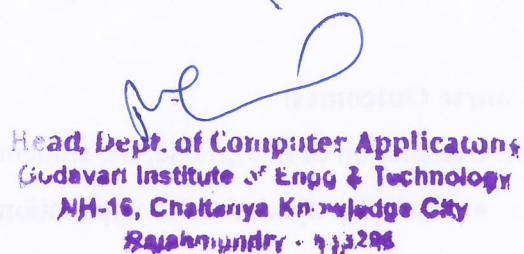 Course Outcomes:
Head, Dept. of Computer Applicatons
Godavari Institute of Engg & Technology
NH-16, Chaitanya Knowledge City
Rajahmundry -